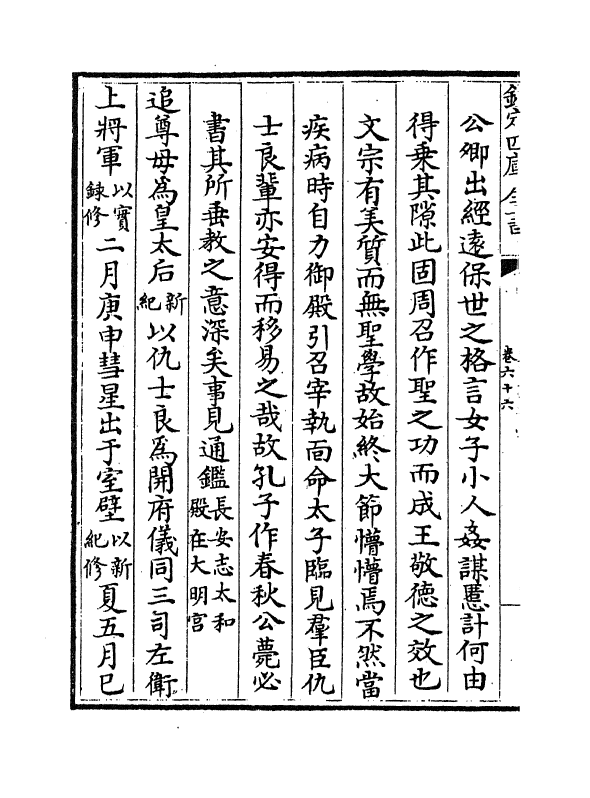 欽定四庫全書
卷六十六
公卿出經遠保世之格言女子小人姦謀慝計何由
得乗其隙此固周召作聖之功而成王敬德之效也
文宗有美質而無聖學故始終大節懵懵焉不然當
疾病時自力御殿引召宰執面命太子臨見羣臣仇
士良輩亦安得而移易之哉故孔子作春秋公薨必
書其所垂教之意深矣事見通鑑長安志太和殿在大明宫
追尊母為皇太后新紀以仇士良為開府儀同三司左衛
上將軍以實録修二月庚申彗星出于室壁以新紀修夏五月已